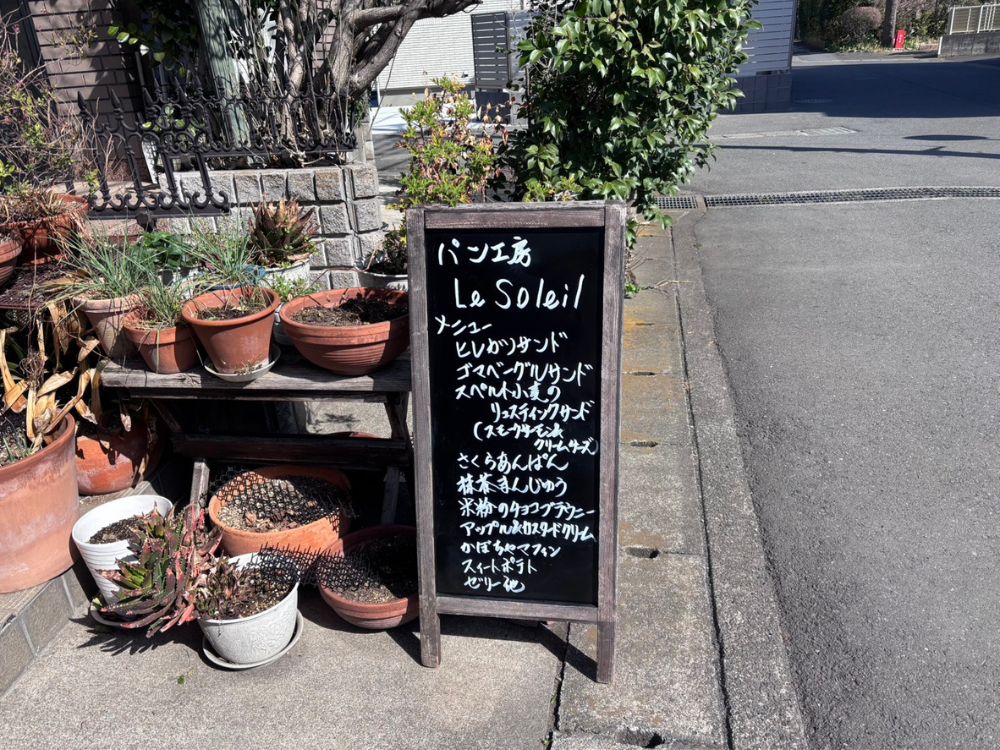 パン工房
Le Soleil
メニュー
ヒレカツサンド
ゴマベーグルサンド
スペルト小麦の
リュスティックサンド
(スモークサーモン&
クリームチーズ
さくらあんぱん
抹茶まんじゅう
米粉のチョコブラウニー
アップル&カスタードクリーム
かぼちゃマフィン
スイートポテト
ゼリー他